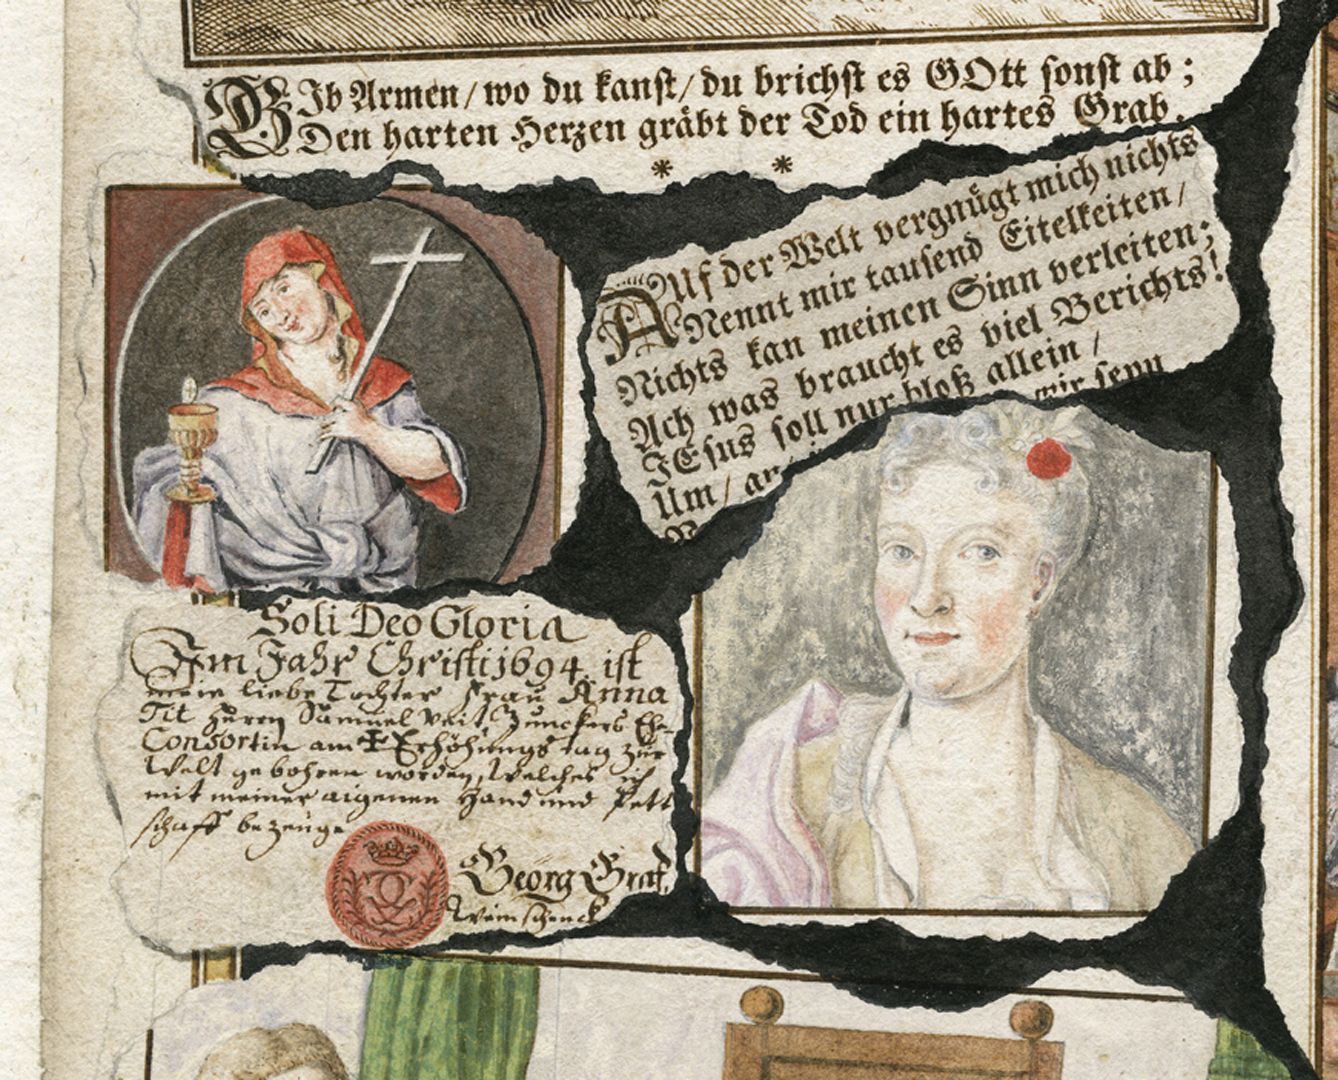 GIb Armen/ wo du kanst/ du brichst es GOtt sonst ab;
Den harten Herzen gräbt der Tod ein hartes Grab.
* *
AUf der Welt vergnügt mich nichts
Nennt mir tausend Eitelkeiten/
Nichts kan meinen Sinn verleiten;
Ach was braucht es viel Berichts!
JEsus soll nur bloß allein/
Um/ an mir seyn
Soli Deo Gloria
Im Jahr Christi 1694. ist
meine liebe Tochter Frau Anna
Tit Herrn Samuel Veit Zunckers Eh-
Consortin am Erhöhungs tag zur
Welt gebohren worden, welches ich
mit meiner aigenen Hand und Pett
schafft bezeuge
Georg Graf,
Weinschenck